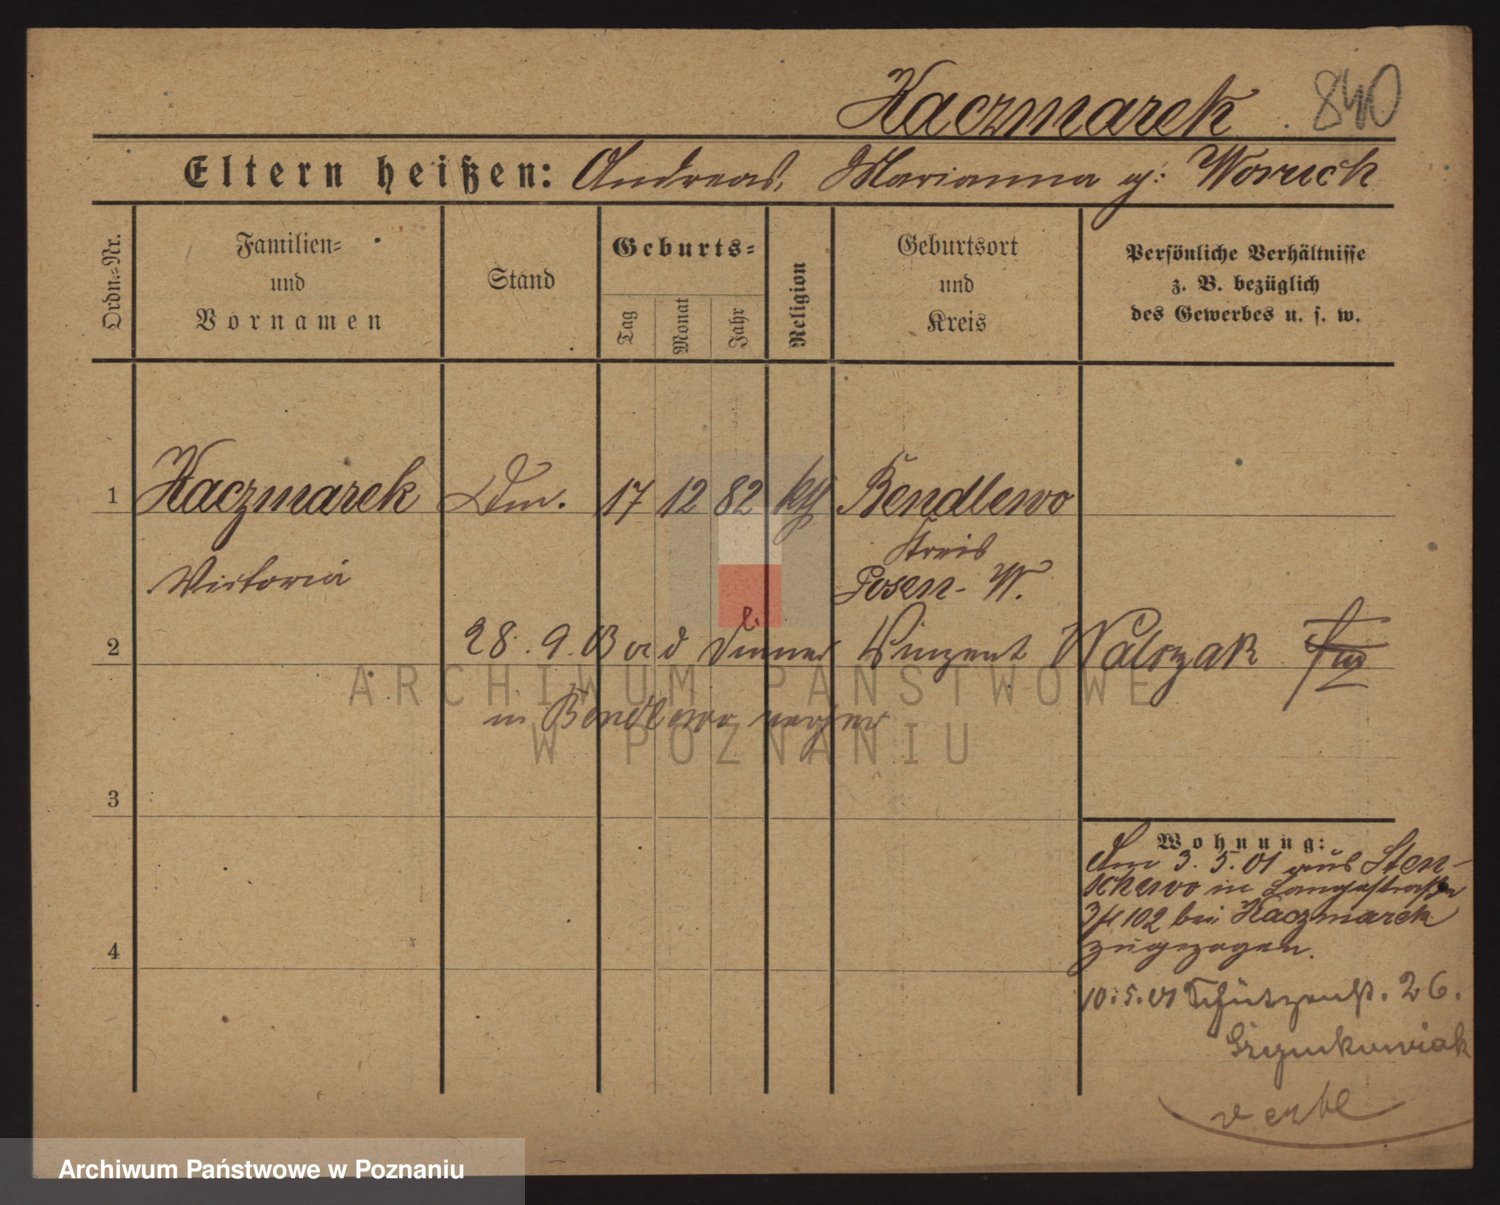 Kaczmarek 840
Eltern heißen: Andreas, Marianna g: Woruch
Ordn.-Nr.
Familien-
und
Vornamen
Stand
Geburts-
Tag
Monat
Jahr
Religion
Geburtsort
und
Kreis
Persönliche Verhältnisse
z. B. bezüglich
des Gewerbes u. s. w.
1 Kaczmarek Dm. 17 12 82 kth Bendlewo
Kreis
Victoria Posen-W.
2 28. 9. Vinzent Walczak
in Bendlewo
3
Wohnung:
Am 3.5.01 aus Sten-
schewo in Langestraße
3/ 102 bei Kaczmarek
4
zugezogen.
10.5.01 Schützenstr. 26.
verbl
ARCHIWUM PAŃSTWOWE
W POZNANIU
Archiwum Państwowe w Poznaniu